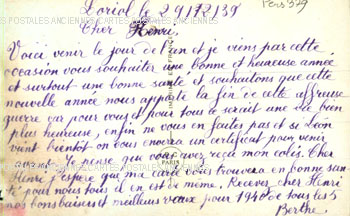 Loriol le 29/12/39
Cher Henri,
Voici venir le jour de l'an et je viens par cette
occasion vous souhaiter une bonne et heureuse année
et surtout une bonne santé et souhaitons que cette
nouvelle année nous apporte la fin de cette affreuse
guerre car pour vous et pour tous ce serait une vie bien
plus heureuse, enfin ne vous en faites pas et si Léon
vient bientôt on vous enverra un certificat pour venir
avant. Je pense que vous avez reçu mon colis. Cher
Henri j'espère que ma carte vous trouvera en bonne san-
té pour nous tous il en est de même. Recevez cher Henri
nos bons baisers et meilleurs vœux pour 1940 de tous les 5
Berthe.